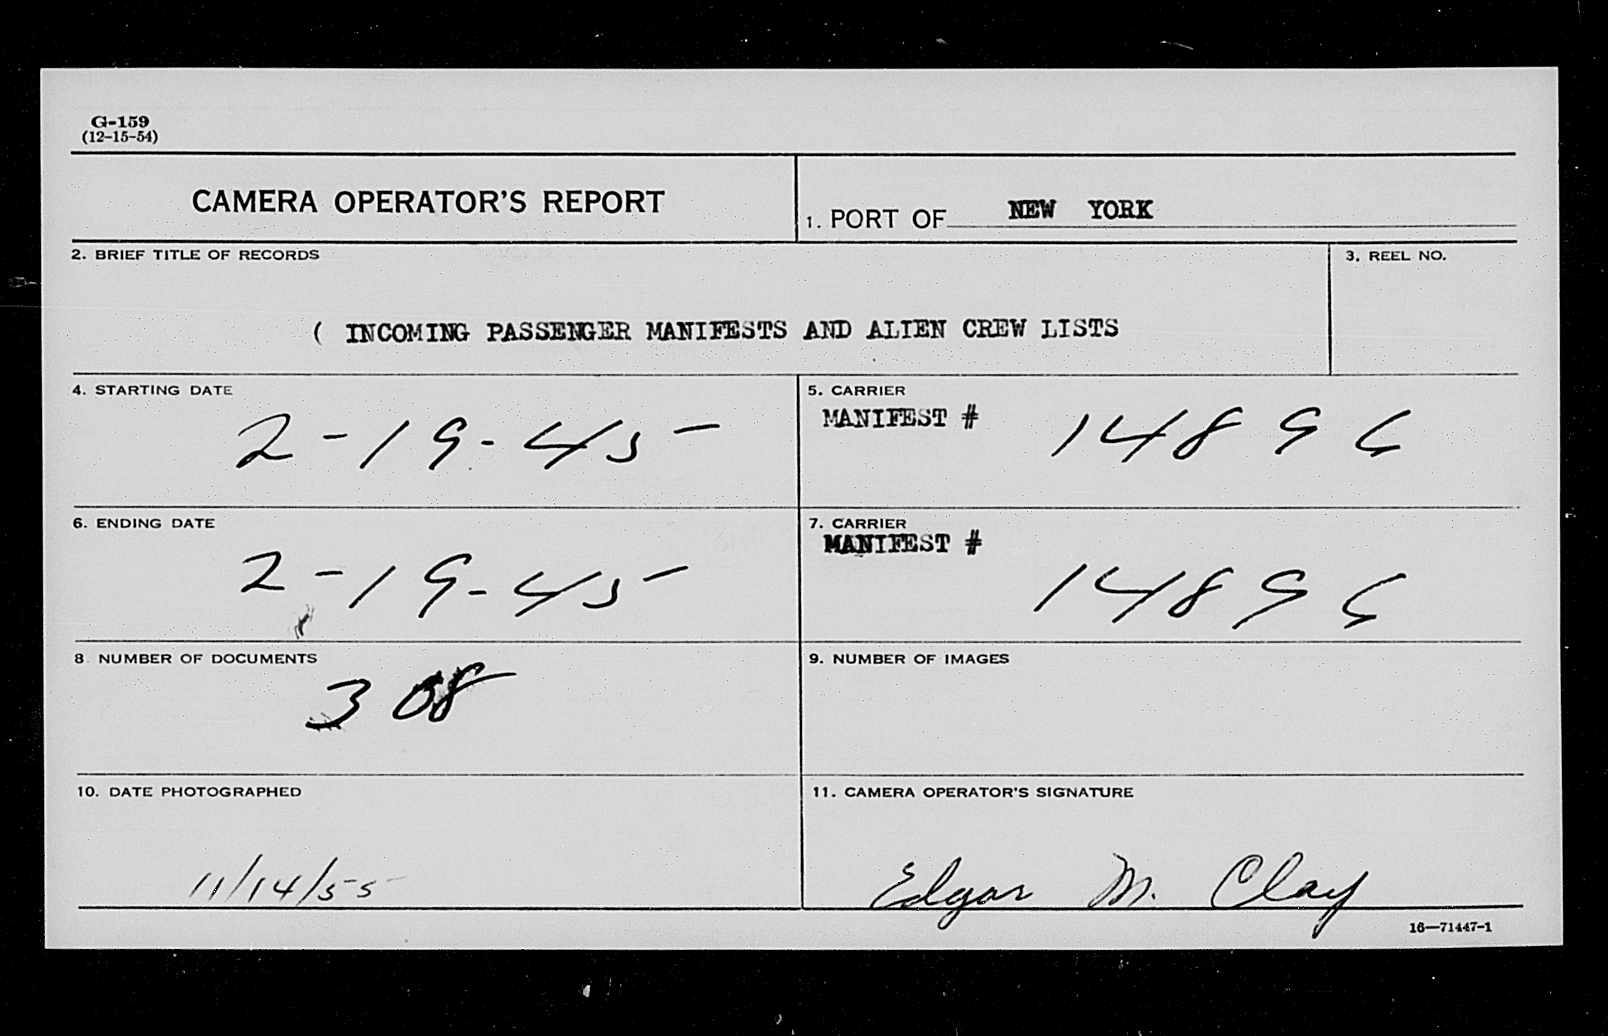 G-159
(12-15-54)
CAMERA OPERATOR'S REPORT
1. PORT OF NEW YORK
2. BRIEF TITLE OF RECORDS
3. REEL NO.
( INCOMING PASSENGER MANIFESTS AND ALIEN CREW LISTS
4. STARTING DATE
2-19-45
5. CARRIER
MANIFEST # 14896
6. ENDING DATE
2-19-45
7. CARRIER
MANIFEST #
14896
8 NUMBER OF DOCUMENTS
308
9. NUMBER OF IMAGES
10. DATE PHOTOGRAPHED
11/14/55
11. CAMERA OPERATOR'S SIGNATURE
Edgar M. Clay
16—71447-1